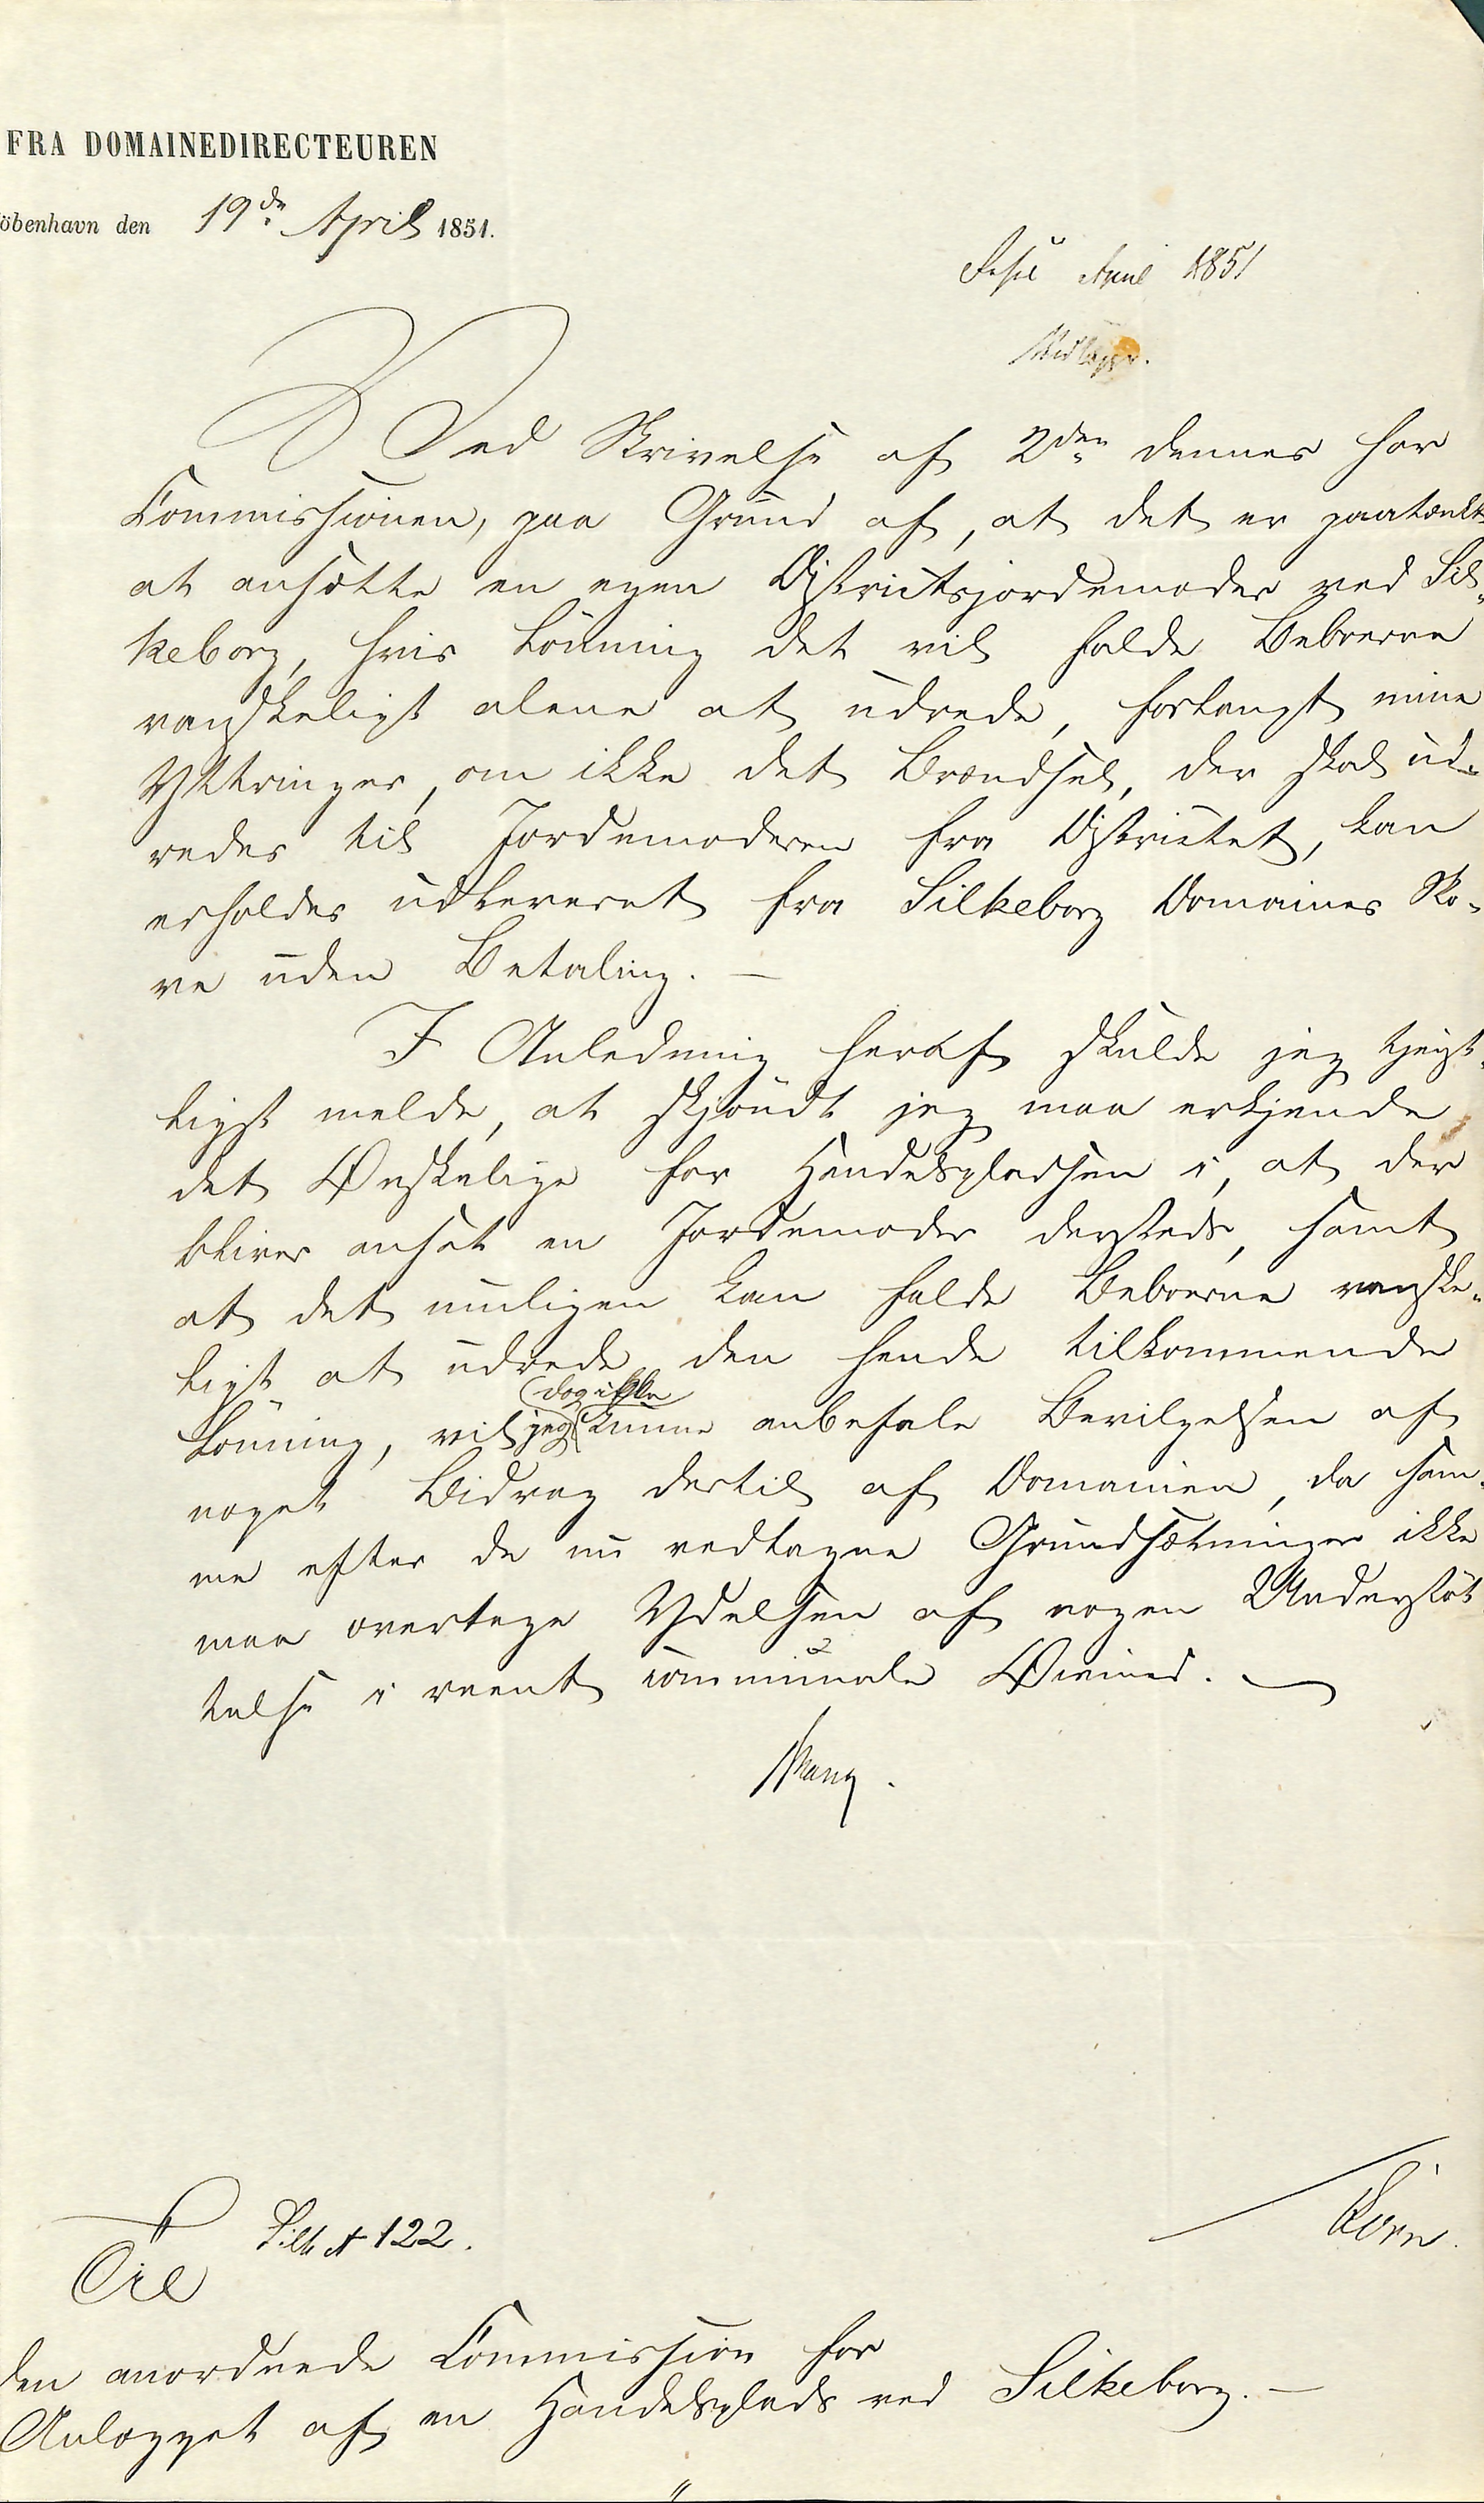 FRA DOMAINEDIRECTEUREN
öbenhavn den 19de April 1851.
April 1851
Ved Skrivelse af 2den dennes har
Commissionen, paa Grund af, at det er paatænkt
at ansætte en egen Districtsjordemoder ved Sil-
keborg, hvis Lönning det vil falde Beboerne
vanskeligt alene at udrede, forlangt mine
Yttringer, om ikke det Brændsel, der skal ud-
redes til Jordemoderen fra Districtet, kan
erholdes udleveret fra Silkeborg Domaines Sko-
ve uden Betaling. —
I Anledning heraf skulde jeg tjenst-
ligst melde, at skjöndt jeg maa erkjende
det Ønskelige for Handelspladsen i, at der
bliver ansat en Jordemoder dersteds, samt
at det muligen kan falde Beboerne vanske-
ligt at udrede den hende tilkommende
Lönning, vil jeg dog ikke kunne anbefale Bevilgelsen af
noget Bidrag dertil af Domainen, da sam-
me efter de nu vedtagne Grundsætninger ikke
maa overtage Ydelsen af nogen Understöt
telse i reent communale Øiemed. —
Silk A 122.
Til
den anordnede Commission for
Anlægget af en Handelsplads ved Silkeborg. —